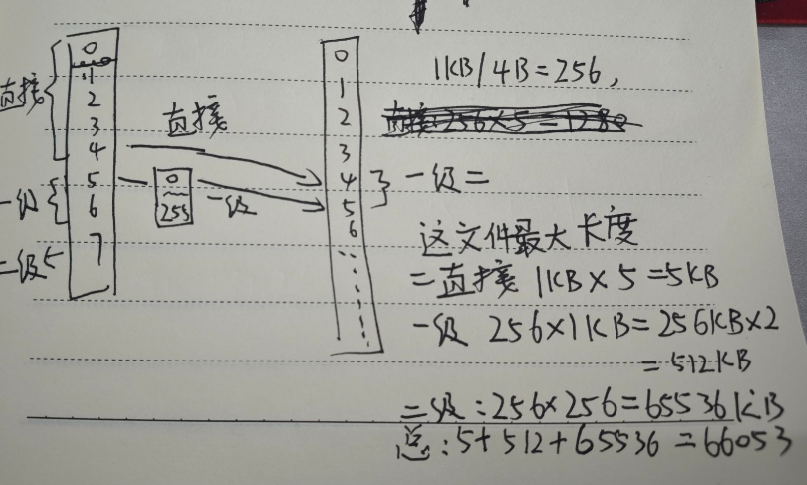 直接
0
1
2
3
4
5
6
7
一级
二级
直接
0
255
一级
0
1
2
3
4
5
6
1KB/4B=256,
直接:256×5=1280
一级=
这文件最大长度
=直接 1KB×5=5KB
一级 256×1KB=256KB×2
=512KB
二级:256×256=65536KB
总:5+512+65536=66053